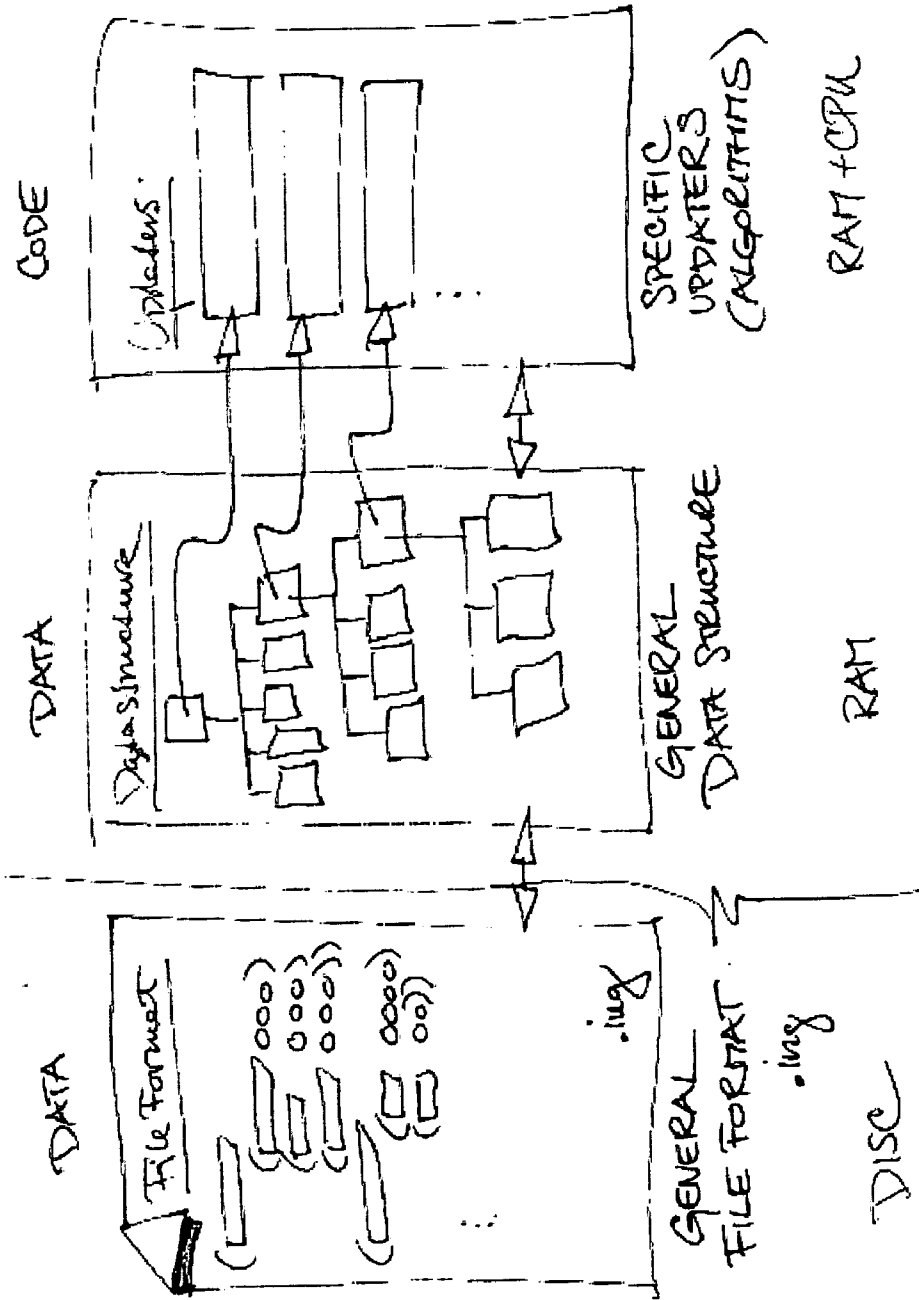 DATA
File Format
.ing
GENERAL
FILE FORMAT
.ing
DISC
DATA
Datastructure
GENERAL
DATA STRUCTURE
RAM
CODE
Updaters.
...
SPECIFIC
UPDATERS
(ALGORITHMS)
RAM + CPU